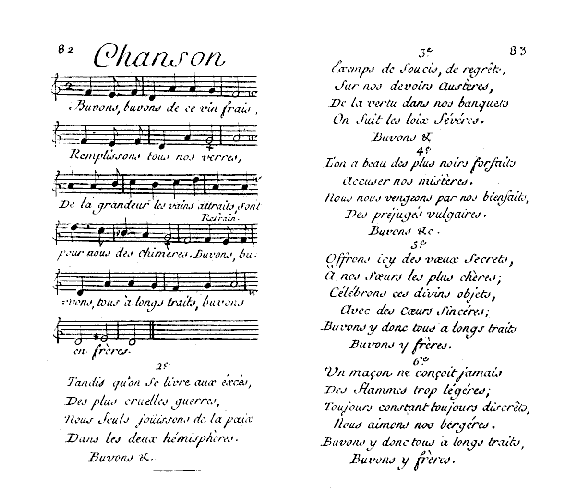 82
Chanson
Buvons, buvons de ce vin frais,
Remplissons tous nos verres,
De la grandeur les vains attraits, sont
Refrain.
pour nous des chimères. Buvons, bu-
vons, tous à longs traits, buvons
en frères.
2e
Tandis qu'on se livre aux éxcès,
Des plus cruelles guerres,
Nous Seuls joüissons de la paix
Dans les deux hémisphères.
Buvons &.
83
3e
Exemps de Soucis, de regrêts,
Sur nos devoirs Austères,
De la vertu dans nos banquets
On Suit les loix Sévères.
Buvons &
4e
L'on a beau des plus noirs forfaits
Accuser nos mistères.
Nous nous vengeons par nos bienfaits,
Des préjugés vulgaires.
Buvons &c.
5e
Offrons icy des vœux Secrets,
A nos Sœurs les plus chères;
Célébrons ces divins objets,
Avec des Cœurs Sincéres;
Buvons y donc tous a longs traits
Buvons y frères.
6e
Un maçon ne conçoit jamais
Des flammes trop légéres;
Toujours constant toujours discrêts,
Nous aimons nos bergéres.
Buvons y donc tous a longs traits,
Buvons y frères.